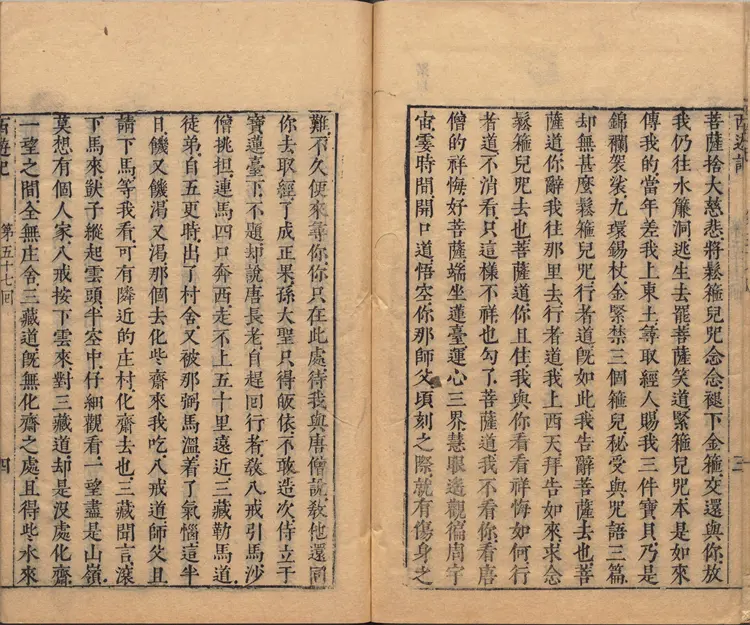 西遊記
三
菩薩捨大慈悲將鬆箍兒咒念念褪下金箍交還與你放
我仍往水簾洞逃生去罷菩薩笑道緊箍兒咒本是如來
傳我的當年差我上東土尋取經人賜我三件寶貝乃是
錦襴袈裟九環錫杖金緊禁三個箍兒秘受與咒語三篇
却無甚麼鬆箍兒咒行者道既如此我告辭菩薩去也菩
薩道你辭我往那里去行者道我上西天拜告如來求念
鬆箍兒咒去也菩薩道你且住我與你看看祥悔如何行
者道不消看只這樣不祥也勾了菩薩道我不看你看唐
僧的祥悔好菩薩端坐蓮臺運心三界慧眼遙觀徧周宇
宙霎時間開口道悟空你那師父頃刻之際就有傷身之
難不久便來尋你你只在此處待我與唐僧說教他還同
你去取經了成正果孫大聖只得皈依不敢造次侍立于
寶蓮臺下不題却說唐長老自趕回行者教八戒引馬沙
僧挑担連馬四口奔西走不上五十里遠近三藏勒馬道
徒弟自五更時出了村舍又被那弼馬溫着了氣惱這半
日饑又饑渴又渴那個去化些齋來我吃八戒道師父且
請下馬等我看可有隣近的庄村化齋去也三藏聞言滾
下馬來獃子縱起雲頭半空中仔細觀看一望盡是山嶺
莫想有個人家八戒按下雲來對三藏道却是沒處化齋
一望之間全無庄舍三藏道既無化齋之處且得些水來
西遊記
第五十七回
四